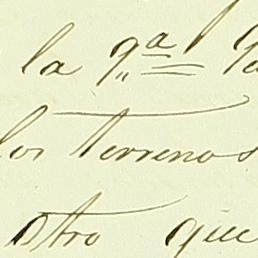 la q.ª
los terrenos
otro que